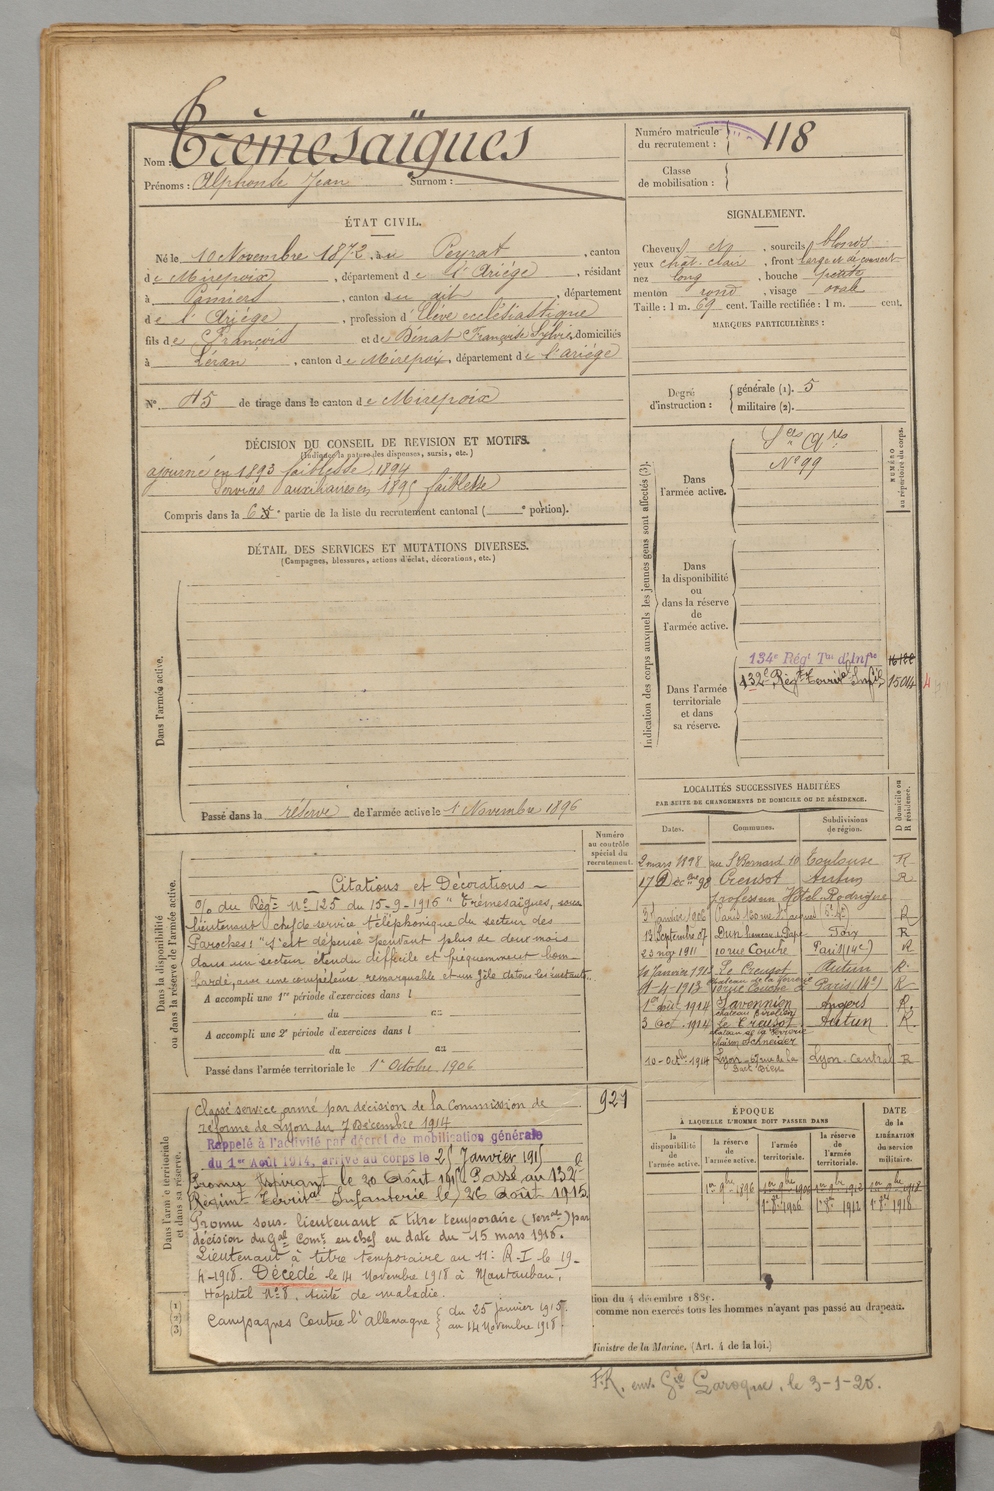 Nom : Trèmesaïgues
Prénoms : Alphonse Jean Surnom :
Numéro matricule du recrutement : 118
Classe de mobilisation :
ÉTAT CIVIL.
Né le 10 Novembre 1872, au Peyrat, canton
de Mirepoix, département de l'Ariège, résidant
à Pamiers, canton du dit, département
de l'Ariège, profession d'Elève ecclésiastique
fils de François et de Bénat Françoise Sylvie, domiciliés
à Léran, canton de Mirepoix, département de l'ariège
N° 45 de tirage dans le canton de Mirepoix
SIGNALEMENT.
Cheveux et, sourcils blonds
yeux chât. clair, front large et découvert
nez long, bouche petite
menton rond, visage ovale
Taille : 1 m. 69 cent. Taille rectifiée : 1 m. cent.
MARQUES PARTICULIÈRES :
Degré d'instruction : générale (1). 5
militaire (2).
DÉCISION DU CONSEIL DE REVISION ET MOTIFS.
(Indiquer la nature des dispenses, sursis, etc.)
ajourné en 1893 faiblesse, 1894
Services auxiliaires en 1895 faiblesse
Compris dans la 6e partie de la liste du recrutement cantonal ( e portion).
DÉTAIL DES SERVICES ET MUTATIONS DIVERSES.
(Campagnes, blessures, actions d'éclat, décorations, etc.)
Dans l'armée active.
Passé dans la réserve de l'armée active le 1er Novembre 1896
Indication des corps auxquels les jeunes gens sont affectés (3).
NUMÉRO au répertoire du corps.
Dans l'armée active.
Sces Aqres
N° 99
Dans la disponibilité ou dans la réserve de l'armée active.
Dans l'armée territoriale et dans sa réserve.
134e Régt Tal d'Infie
132e Régt Territal Infie 15014
LOCALITÉS SUCCESSIVES HABITÉES
PAR SUITE DE CHANGEMENTS DE DOMICILE OU DE RÉSIDENCE.
Dates. Communes. Subdivisions de région. D domicile ou R résidence.
2 mars 1898 au St Bernard 10 Toulouse R
17 Dbre 98 Creusot Autun R
professeur Hôtel Rodrigue
1906 Paris R
13 Septembre 07 Dun R
23 nov 1911 10 rue Couche Paris (14e) R
10 Janvier 1913 Le Creusot Autun R
4-4 1913 10 rue Couche Paris (14e) R
1er août 1914 Savennien Angers R
3 oct. 1914 Le Creusot Autun R
Maison Schneider
10-Octbre 1914 Lyon Lyon-Central R
Numéro au contrôle spécial du recrutement.
Dans la disponibilité ou dans la réserve de l'armée active.
— Citations et Décorations —
O/ du Régt N° 125 du 15-9-1916 " Trémesaïgues, sous
lieutenant chef de service téléphonique du secteur des
Paroches : "S'est dépensé pendant plus de deux mois
dans un secteur étendu difficile et fréquemment bom-
bardé, avec une compétence remarquable et un zèle de tous les instants.
A accompli une 1re période d'exercices dans l
du au
A accompli une 2e période d'exercices dans l
du au
Passé dans l'armée territoriale le 1er Octobre 1906
921
Dans l'armée territoriale et dans sa réserve.
Classé service armé par décision de la Commission de
réforme de Lyon du 7 Décembre 1914
Rappelé à l'activité par décret de mobilisation générale
du 1er Août 1914, arrivé au corps le 25 Janvier 1915
Promu le 20 Août 1915 Passé au 132e
Régiment Territal Infanterie le 26 Août 1915
Promu sous-lieutenant à titre temporaire (Terral) par
décision du Gal Comt en chef en date du 15 mars 1916.
Lieutenant à titre temporaire au 11e R-I le 19-
4-1918. Décédé le 14 Novembre 1918 à Montauban,
Hôpital N° 8, suite de maladie.
Campagnes Contre l'Allemagne { du 25 Janvier 1915.
au 14 Novembre 1918.
ÉPOQUE
À LAQUELLE L'HOMME DOIT PASSER DANS
DATE DE LA LIBÉRATION DU SERVICE MILITAIRE.
la disponibilité de l'armée active. la réserve de l'armée active. l'armée territoriale. la réserve de l'armée territoriale.
1er 9bre 1896 1er 9bre 1906 1er 9bre 1912 1er 9bre 1918
1er 8bre 1906 1er 8bre 1912 1er 8bre 1918
comme non exercés tous les hommes n'ayant pas passé au drapeau.
Ministre de la Marine. (Art. 4 de la loi.)
F.R. env. Gie Laroque, le 3-1-20.